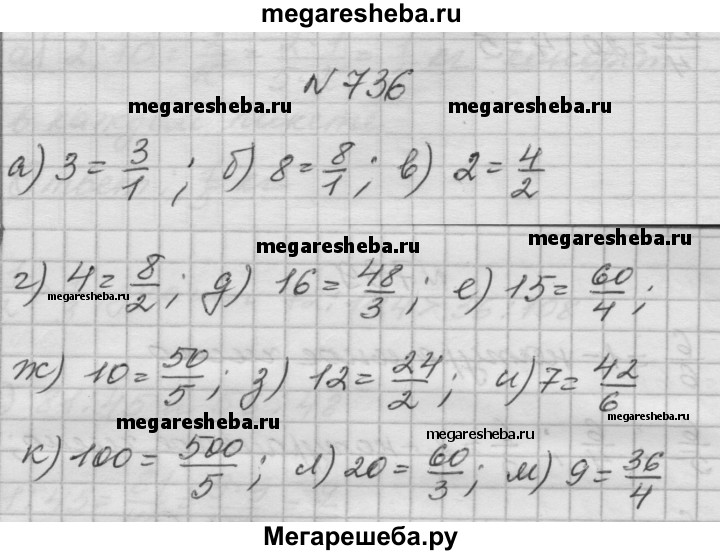 megaresheba.ru
№ 736
megaresheba.ru megaresheba.ru
а) 3 = 3/1 ; б) 8 = 8/1 ; в) 2 = 4/2
megaresheba.ru megaresheba.ru
г) 4 = 8/2 ; д) 16 = 48/3 ; е) 15 = 60/4 ;
megaresheba.ru
ж) 10 = 50/5 ; з) 12 = 24/2 ; и) 7 = 42/6
megaresheba.ru megaresheba.ru megaresheba.ru
к) 100 = 500/5 ; л) 20 = 60/3 ; м) 9 = 36/4
Мегарешеба.ру